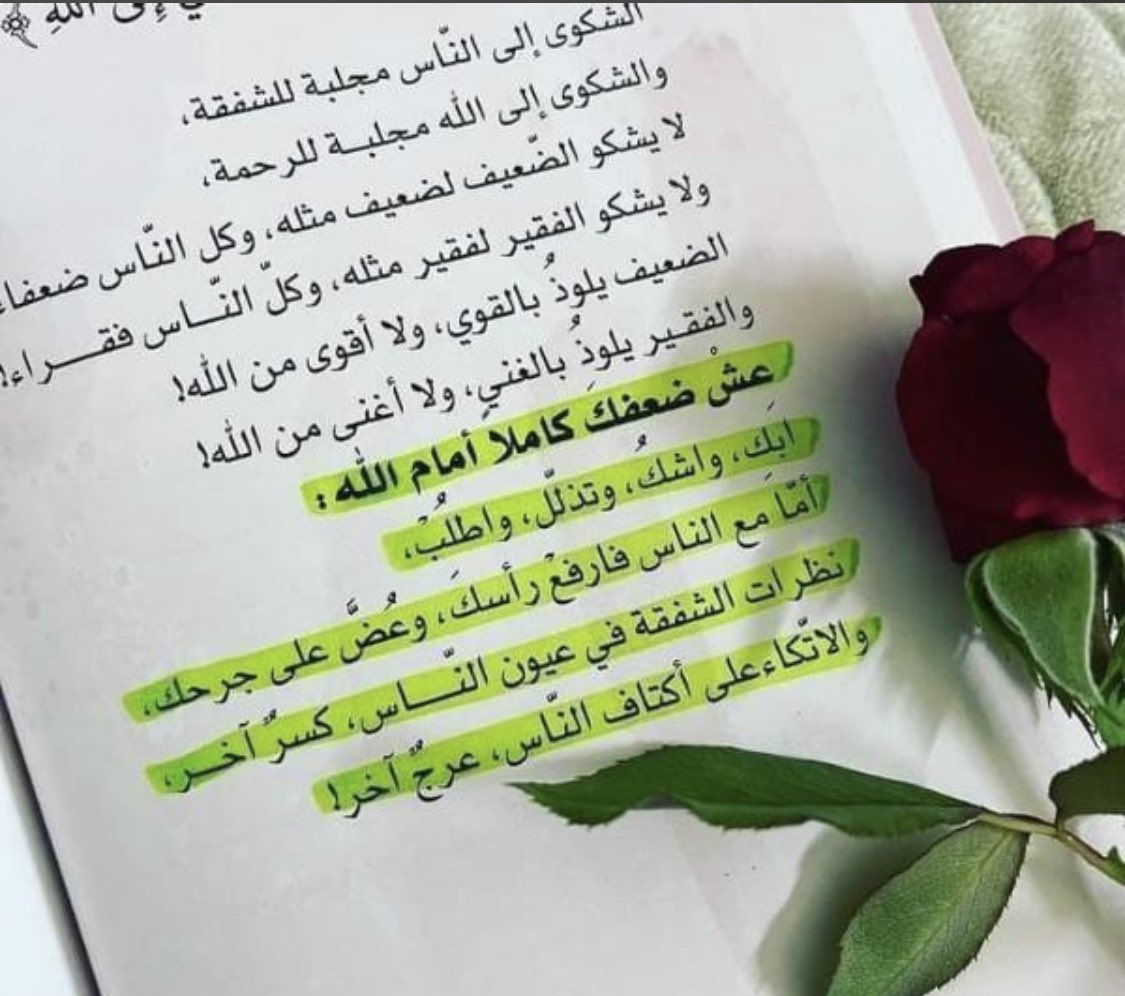 إلى اللهِ ﴾
الشكوى إلى النّاس مجلبة للشفقة،
والشكوى إلى الله مجلبـة للرحمة،
لا يشكو الضّعيف لضعيف مثله، وكل النّاس ضعفاء
ولا يشكو الفقير لفقير مثله، وكلّ النّـاس فقـــراء!
الضعيف يلوذُ بالقوي، ولا أقوى من الله!
والفقـير يلوذُ بالغني، ولا أغنى من الله!
عِشْ ضعفكَ كاملاً أمام الله :
ابكِ، واشكُ، وتذلّل، واطلُبْ،
أمّا مع الناس فارفعْ رأسكَ، وعُضَّ على جرحك،
نظرات الشفقة في عيون النّـــاس، كسرٌ آخـر،
والاتّكاء على أكتاف النّاس، عرجٌ آخر!